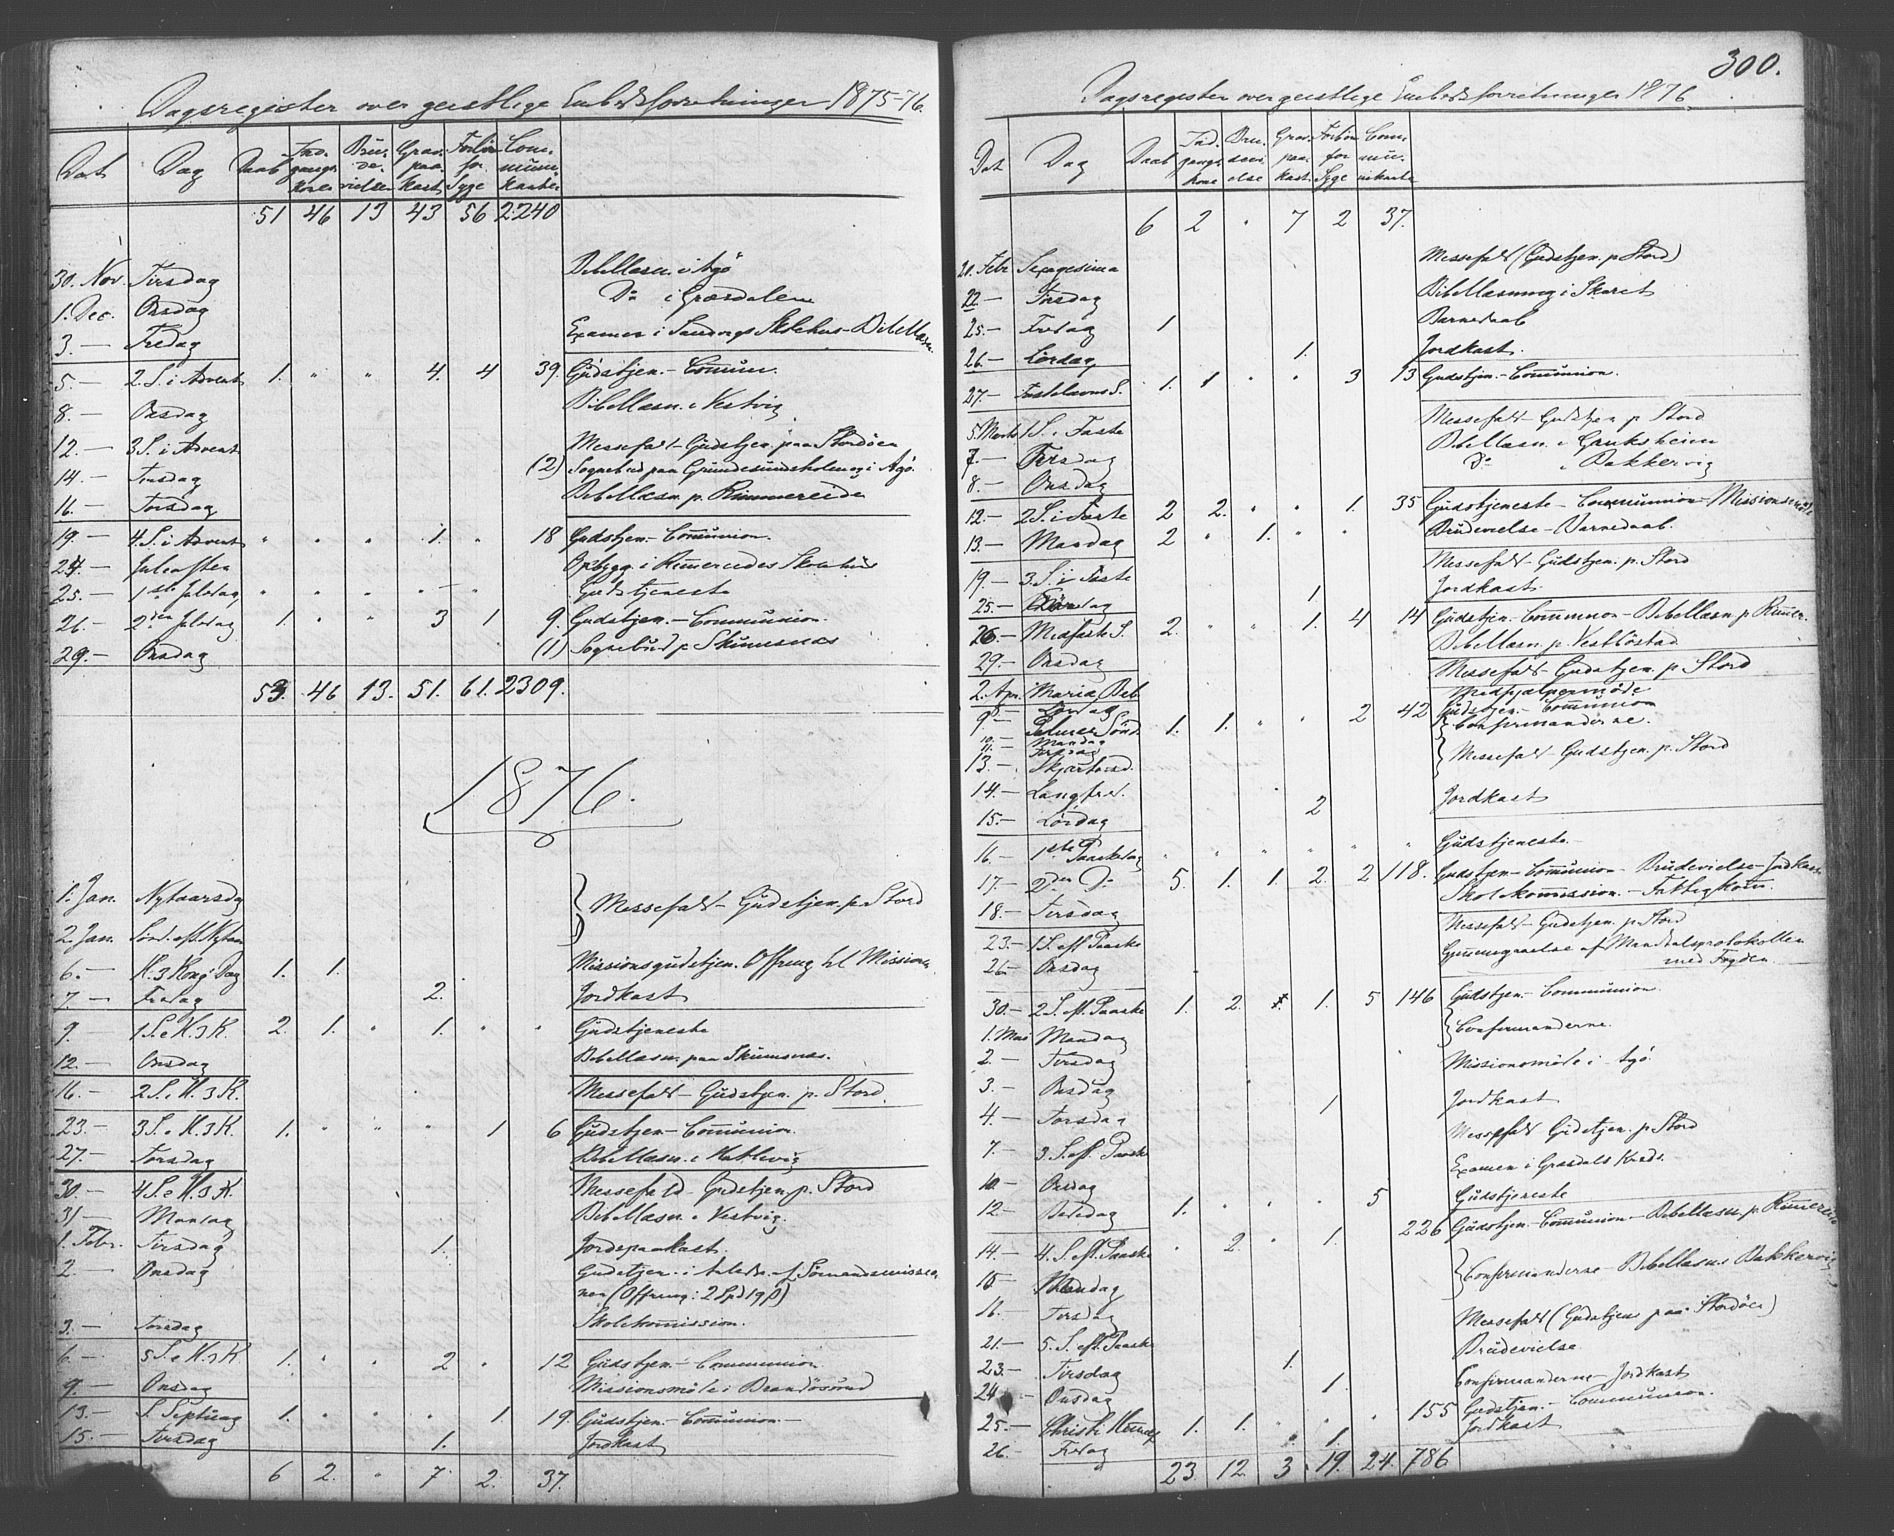 Dagsregister over geistlige Embedsforretninger 1875-76.
Dat Dag Daab Ind-gangs-koner Brü-de-vielser Grav. paa-kast Forbön for Syge Com-mün-kanter
51 46 13 43 56 2240
30. Nov. Tirsdag Bibellæsn. i Agö
1. Dec. Onsdag Do i Græsdalen
3. — Fredag Examen i Skolehus - Bibellæsn.
5. — 2. S. i Advent 1. " " 4. 4 39. Güdstjen. - Commün.
8. — Onsdag Bibellæsn. i Vestvig
12. — 3 S. i Advent Messefald - Güdstjen. paa Stordöen
14. — Tirsdag (2) Sognebud paa Gründesundsholmen og i Agö.
16. — Torsdag Bibellæsn. p. Rimmereide
19. — 4. S. i Advent " " " 1. " 18 Gudstjen. - Commünion.
24. — Juleaften Opbygg. i Rimereides Skolehüs
25. — 1ste Juledag " " " — " Güdstjeneste
26. — 2den Juledag 1. " " 3 1 9. Gudstjen. - Commünion.
29. — Onsdag (1) Sognebud p. Skumsnæs
53. 46 13. 51. 61. 2309.
1876.
1. Jan. Nytaarsdg
2. Jan. Sönd. eft. Nytaar } Messefald - Güdstjen. p. Stord
6. — H. 3 Kong. Dag 1. 1. Missionsgudstjen. Offring til Missionen
7. — Fredag 2. Jordkast
9. — 1 S. e. H. 3 K. 2. 1. " 1. " " Güdstjeneste
12. — Onsdag Bibellæsn. paa Skumsnæs.
16. — 2 S. e. H. 3 K. Messefald - Güdstjen. p. Stord.
23. — 3 S. e. H. 3 K. 1. " " " 1 6 Güdstjen - Commünion.
27. — Torsdag Bibellæsn. i Katlevig
30. — 4 S. e. H. 3 K. Messefald - Gudstjen p. Stord
31 — Mandag Bibellæsn. i Vestvig.
1. Febr. Tirsdag 1. Jordspaakast.
2. — Onsdag Gudstjen. i Anledn. af Sömandsmissio-
nen (Offring: 2 Spd 19 β)
3. — Torsdag Skolekommission.
6. — 5 S. e. H. 3 K. 1. " " 2 " 12 Güdstjen - Communion
9. — Onsdag Missionsmöte i Brandösund
13. — S. Septuag 1. " " " 1. 19. Güdstjen. - Commünion
15. — Tirsdag 1. Jordkast
6 2. " 7. 2. 37.
300.
Dagsregister over geistlige Embedsforretninger 1876
Dat Dag Daab Ind-gangs-kone Brü-devi-else Grav-paa-kast. Forbön for Syge Com-mü-nikante
6 2 " 7 2 37.
20. Febr Sexagesima Messefald (Gudstjen. p. Stord)
22 — Tirsdag Bibellæsning i Skaret
25. — Fredag 1 Barnedaab
26. — Lördag 1. Jordkast.
27. — Fastelavns S. 1. 1 " " 3 13 Gudstjen. - Commünion.
5. Marts 1 S. i Faste Messefald - Gudstjen p. Stord
7. — Tirsdag Bibellæsn. i
8. — Onsdag Do i Bakkervig
12. — 2 S. i Faste 2 2. " " 1. 35 Gudstjeneste - Communion - Missionsmöte
13. — Mandag 2 " 1. " " Brudevielse - Barnedaab.
19. — 3. S. i Faste Messefald - Gudstjen. p. Stord
25. — Lördag 1 Jordkast
26. — Midfaste S. 2. " " 1. 4 14 Gudstjen. Commünion - Bibellæsn p. Rimer.
29. — Onsdag Bibellæsn. p. Vestböstad
2. Apr. Maria Beb. Messefald - Gudstjen. p. Stord
Lördag Medhjælpermöde
9 — Palme Sönd. 1. 1. " " 2 42 Gudstjen. - Communion
10. — Mandag
11. — Tirsdag } Confirmanderne.
13. — Skjærtorsd.
14. — Langfred. } Messefald - Gudstjen. p. Stord
15. — Lördag 2 Jordkast
16. — 1ste Paaskedag " " " " " " Güdstjeneste.
17. — 2den Do 5. 1. 1. 2. 2 118. Gudstjen - Communion - Brudevielse - Jordkast
18. — Tirsdag Skolekommission. - Fattigkom.
23. — 1 S. eft. Paaske Messefald - Gudstjen. p. Stord
26. — Onsdag Gjennemgaaelse af Mandtalsprotokollen
med Fogden.
30. — 2 S. eft. Paaske 1. 2. 1. 5 146 Gudstjen - Communion.
1. Mai Mandag
2. — Tirsdag } Confirmanderne.
3. — Onsdag Missionsmöte i Agö
4. — Torsdag 1 Jordkast
7. — 3. S. eft. Paaske Messefald Gudstjen. p. Stord
10. — Onsdag Examen i Græsdals Kreds.
12. — Bededag 1. " " " 5 Gudstjeneste
14. — 4. S. eft. Paaske " 2. " 1. 226 Gudstjen - Communion - Bibellæsn. p. Rimereide
15. — Mandag
16. Tirsdag } Confirmanderne - Bibellæsn. Bakkervig
21. — 5. S. eft. Paaske Messefald (Gudstjen paa Stordöen)
23. — Tirsdag 1. Brudevielse
24 — Onsdag 1. Confirmanderne - Jordkast
25. — Christi Himmelf 1. 1. " " " 155 Gudstjen. - Communion.
26. Fredag 1. Jordkast
23. 12. 3 19. 24. 786